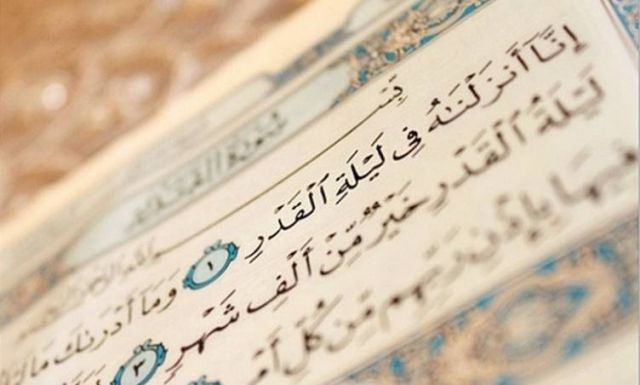 سُورَةُ القَدْرِ
إِنَّآ أَنزَلْنَٰهُ فِى لَيْلَةِ ٱلْقَدْرِ ١ وَمَآ أَدْرَىٰكَ مَا
لَيْلَةُ ٱلْقَدْرِ خَيْرٌ مِّنْ أَلْفِ شَهْرٍ ٣
فِيهَا بِإِذْنِ رَبِّهِم مِّن كُلِّ أَمْ